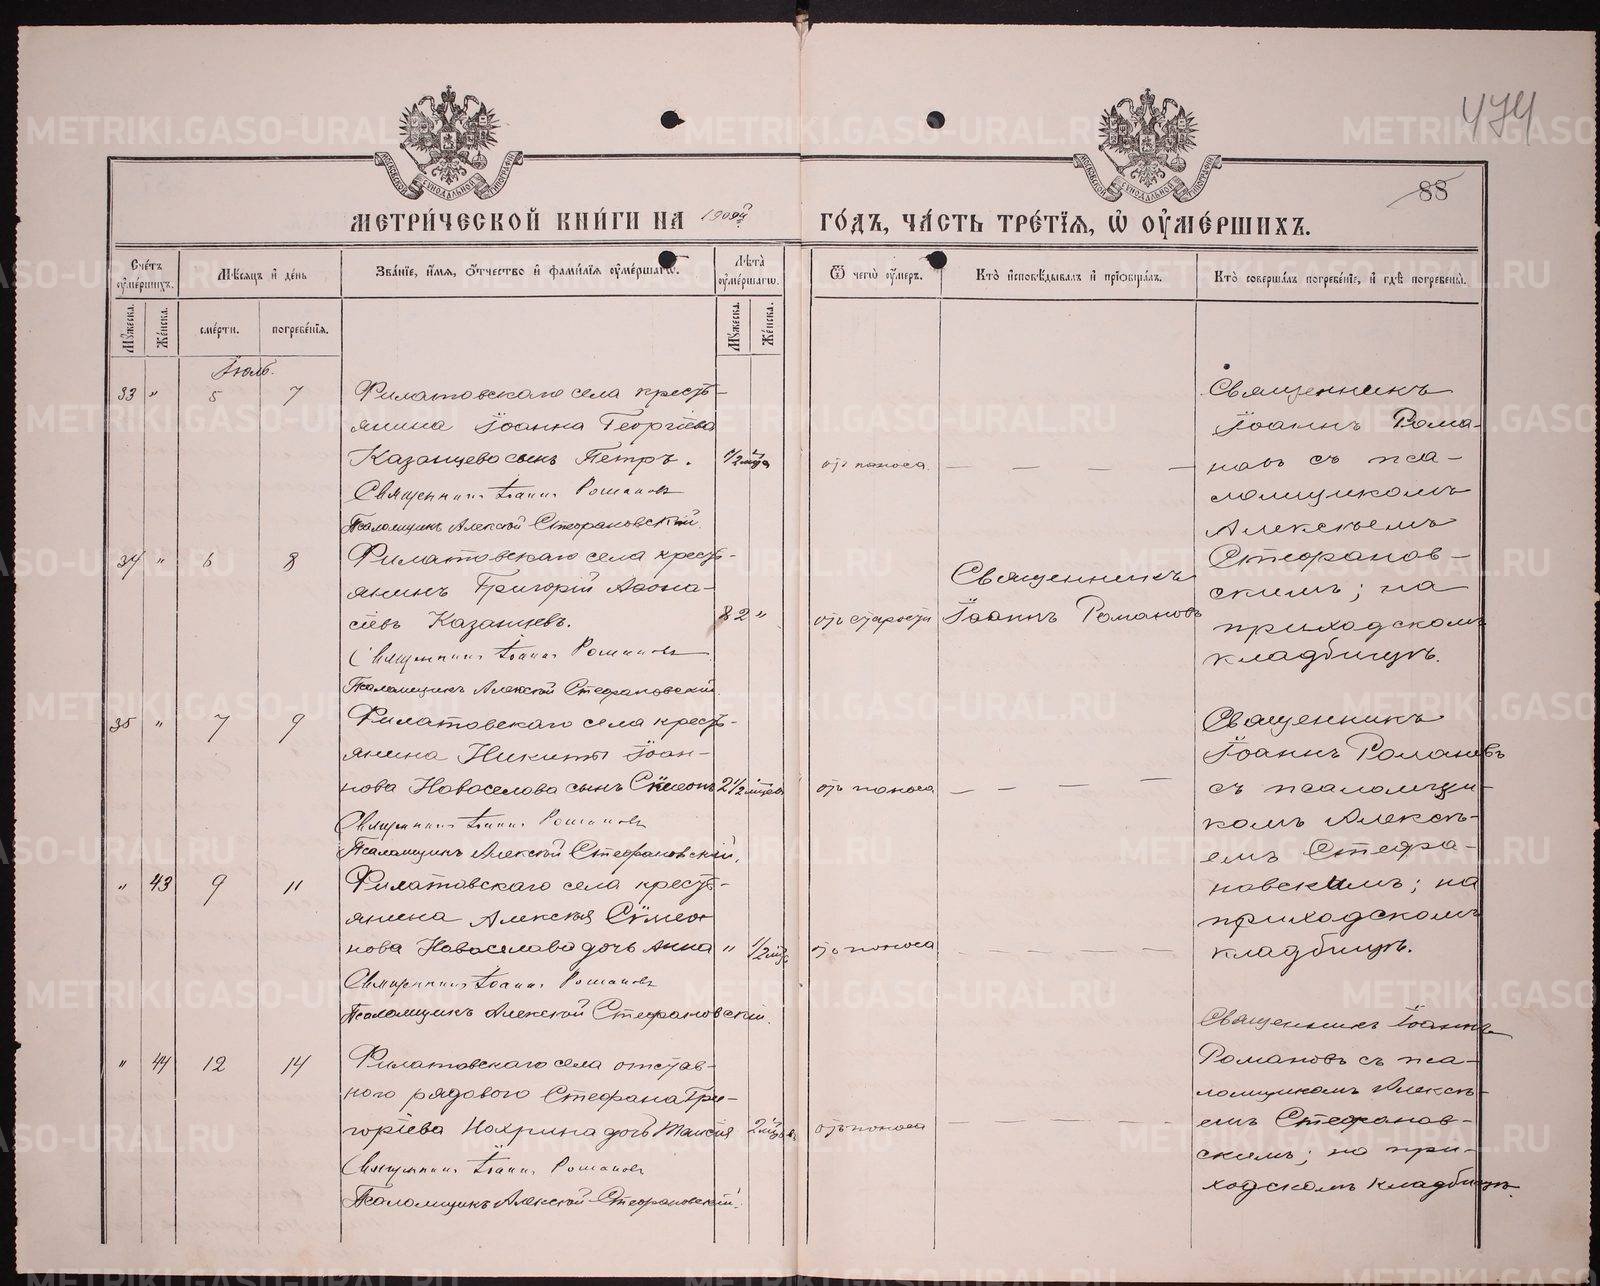 474
88
МОСКОВСКОЙ СѴНОДАЛЬНОЙ ТИПОГРАФІИ
МОСКОВСКОЙ СѴНОДАЛЬНОЙ ТИПОГРАФІИ
МЕТРИ́ЧЕСКОЙ КНИ́ГИ НА 1909й
ГО́ДЪ, ЧА́СТЬ ТРЕ́ТІЯ, Ѡ ОУМЕ́РШИХЪ.
Счетъ оумершихъ.
Мѣсяцъ и день
Званіе, имя, отчество и фамилія оумершагѡ.
Лѣта оумершагѡ.
Ѿ чегѡ оумеръ.
Кто исповѣдывалъ и пріобщалъ.
Кто совершалъ погребеніе, и гдѣ погребены.
Мужеска.
Женска.
смерти.
погребенія.
Мужеска.
Женска.
Іюль.
33 " 5 7
Филатовскаго села кресть-
янина Іоанна Георгіева
Казанцева сынъ Петръ.
Священникъ Іоаннъ Романовъ
Псаломщикъ Алексѣй Стефановскій.
1/2 мца
отъ поноса
— — — —
Священникъ
Іоаннъ Рома-
новъ съ пса-
ломщикомъ
Алексѣемъ
Стефанов-
скимъ; на
приходскомъ
кладбищѣ.
34 " 6 8
Филатовскаго села кресть-
янинъ Григорій Афона-
сіевъ Казанцевъ.
Священникъ Іоаннъ Романовъ
Псаломщикъ Алексѣй Стефановскій.
82 "
отъ старости
Священникъ
Іоаннъ Романовъ
35 " 7 9
Филатовскаго села кресть-
янина Никиты Іоан-
нова Новоселова сынъ Сѵмеонъ
Священникъ Іоаннъ Романовъ
Псаломщикъ Алексѣй Стефановскій.
2 1/2 мцевъ
отъ поноса
— — —
Священникъ
Іоаннъ Романовъ
съ псаломщи-
комъ Алексѣ-
емъ Стефа-
новскимъ; на
приходскомъ
кладбищѣ.
" 43 9 11
Филатовскаго села кресть-
янина Алексѣя Сѵмео-
нова Новоселова дочь Анна
Священникъ Іоаннъ Романовъ
Псаломщикъ Алексѣй Стефановскій.
" 1/2 мца
отъ поноса
— — — — —
" 44 12 14
Филатовскаго села отстав-
ного рядового Стефана Гри-
горіева Нохрина дочь Таисія
Священникъ Іоаннъ Романовъ
Псаломщикъ Алексѣй Стефановскій.
2 мцовъ
отъ поноса
— — — — —
Священникъ Іоаннъ
Романовъ съ пса-
ломщикомъ Алексѣ-
емъ Стефанов-
скимъ; на при-
ходскомъ кладбищѣ.
METRIKI.GASO-URAL.RU